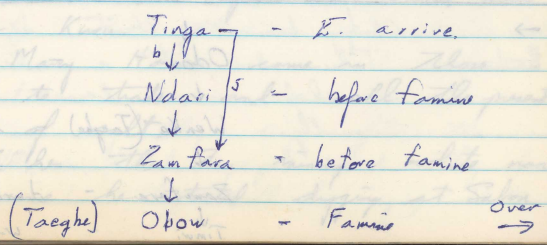 Tinga - E. arrive.
b 5
Ndari - before famine
Zamfara - before famine
(Taeghe) Obow - Famine Over →